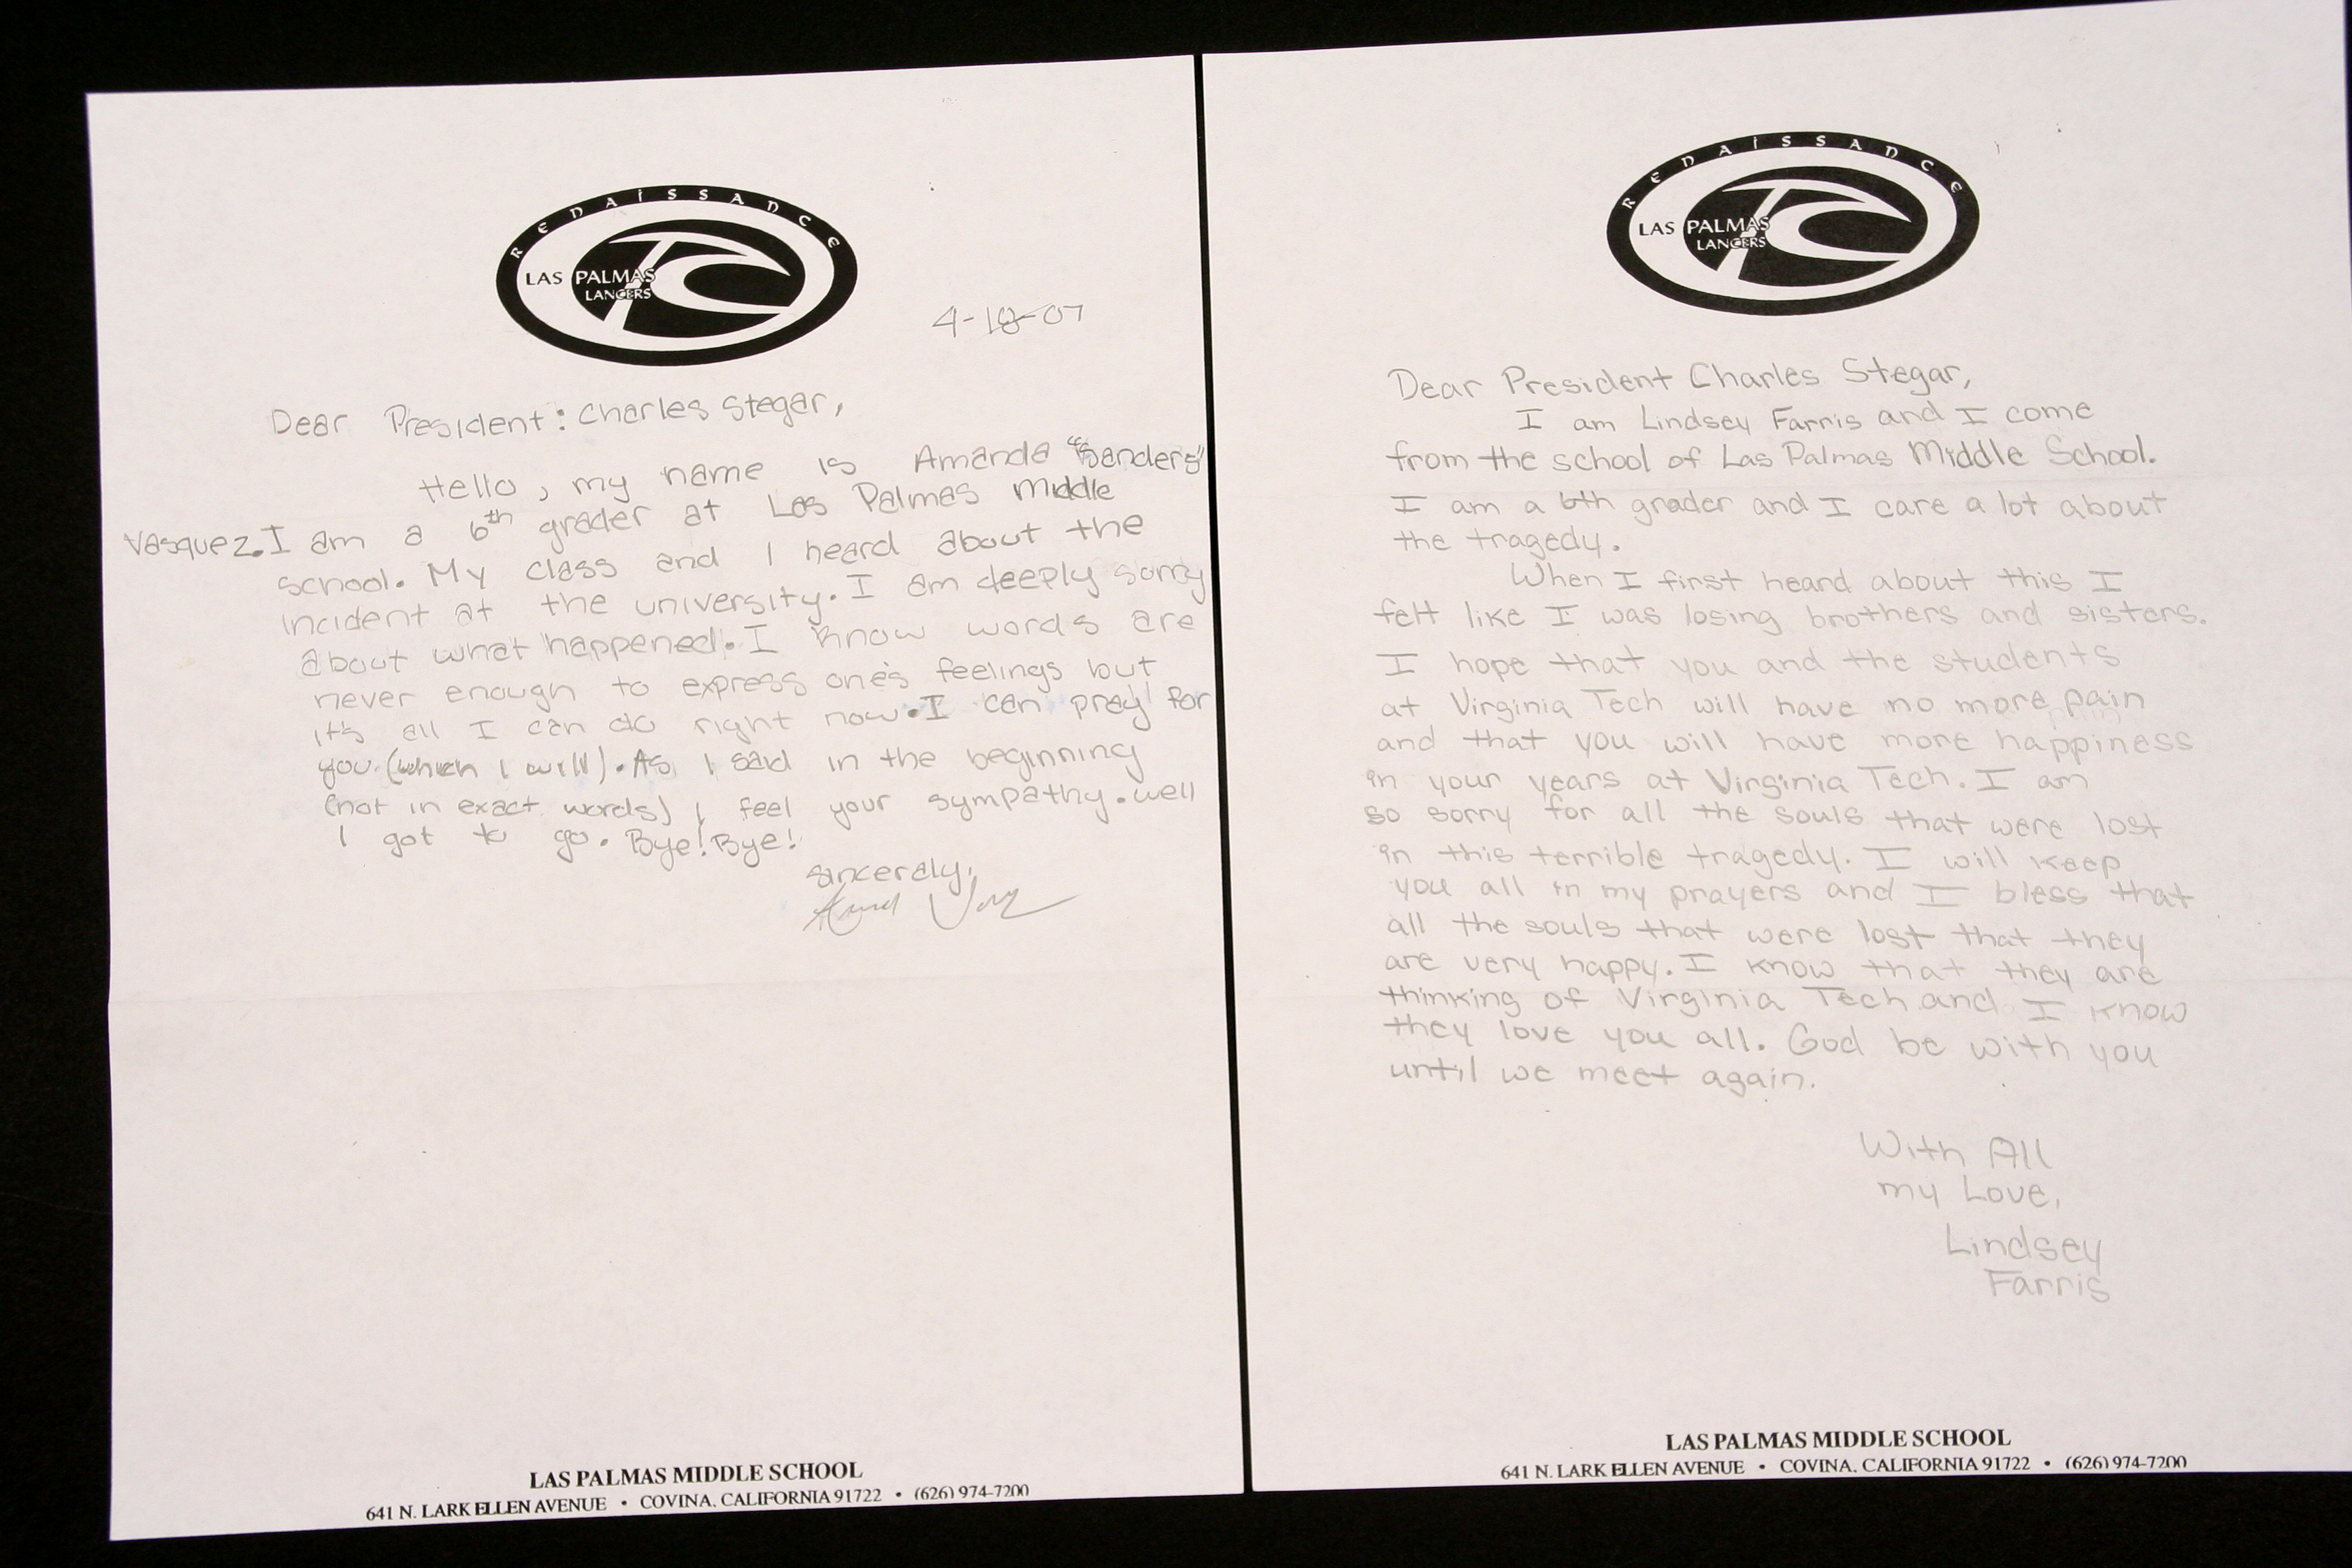 RENAISSANCE
LAS PALMAS
LANCERS
4-18-07
Dear President: Charles Stegar,
Hello, my name is Amanda "Sanders"
Vasquez. I am a 6th grader at Las Palmas Middle
school. My class and I heard about the
incident at the university. I am deeply sorry
about what happened. I know words are
never enough to express one's feelings but
it's all I can do right now. I can pray for
you. (which I will). As I said in the beginning
(not in exact words) I feel your sympathy. well
I got to go. Bye! Bye!
sincerely,
LAS PALMAS MIDDLE SCHOOL
641 N. LARK ELLEN AVENUE • COVINA, CALIFORNIA 91722 • (626) 974-7200
RENAISSANCE
LAS PALMAS
LANCERS
Dear President Charles Stegar,
I am Lindsey Farris and I come
from the school of Las Palmas Middle School.
I am a 6th grader and I care a lot about
the tragedy.
When I first heard about this I
felt like I was losing brothers and sisters.
I hope that you and the students
at Virginia Tech will have no more pain
and that you will have more happiness
in your years at Virginia Tech. I am
so sorry for all the souls that were lost
in this terrible tragedy. I will keep
you all in my prayers and I bless that
all the souls that were lost that they
are very happy. I know that they are
thinking of Virginia Tech and I know
they love you all. God be with you
until we meet again.
With All
my Love,
Lindsey
Farris
LAS PALMAS MIDDLE SCHOOL
641 N. LARK ELLEN AVENUE • COVINA, CALIFORNIA 91722 • (626) 974-7200